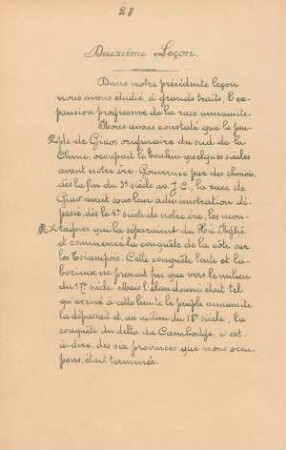 28
Deuxième Leçon.
Dans notre précédente leçon
nous avons étudié, à grands traits, l'ex-
pansion progressive de la race annamite.
Nous avons constaté que le peu-
ple de Giao originaire du sud de la
Chine, occupait le quelques siècles
avant notre ère. Gouverné par des chinois,
dès la fin du 3e siècle av J.C., la race de
Giao avait sous leur administration dé-
passé, dès le 4e siècle de notre ère, les mon-
tagnes qui la séparaient du
et commencé la conquête de la côte sur
les Tsiampois. Cette conquête lente et la-
borieuse ne prenait fin que vers le milieu
du 17e siècle. Mais l'élan donné était tel
qu'arrivé à cette limite le peuple annamite
la dépassait et, au milieu du 18e siècle, la
conquête du delta du Cambodge, c'est
à dire, des six provinces que nous occu-
pons, était terminée.